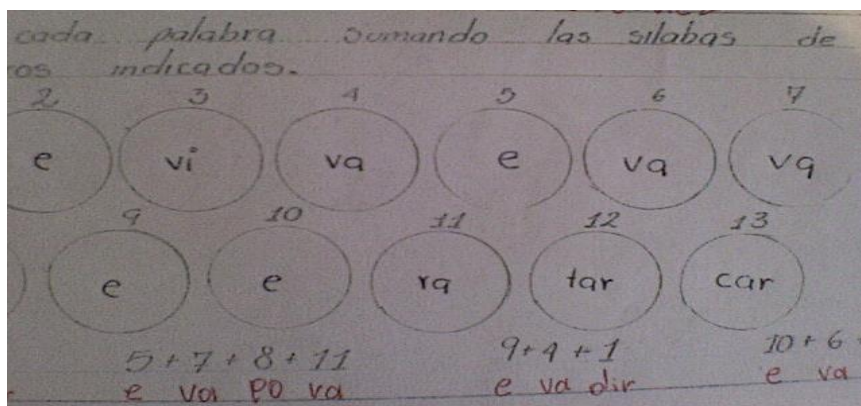 cada palabra sumando las silabas de
os indicados.
2 3 4 5 6 7
e vi va e va va
9 10 11 12 13
e e ra tar car
5+7+8+11 9+4+1 10+6
e va po va e va dir e va